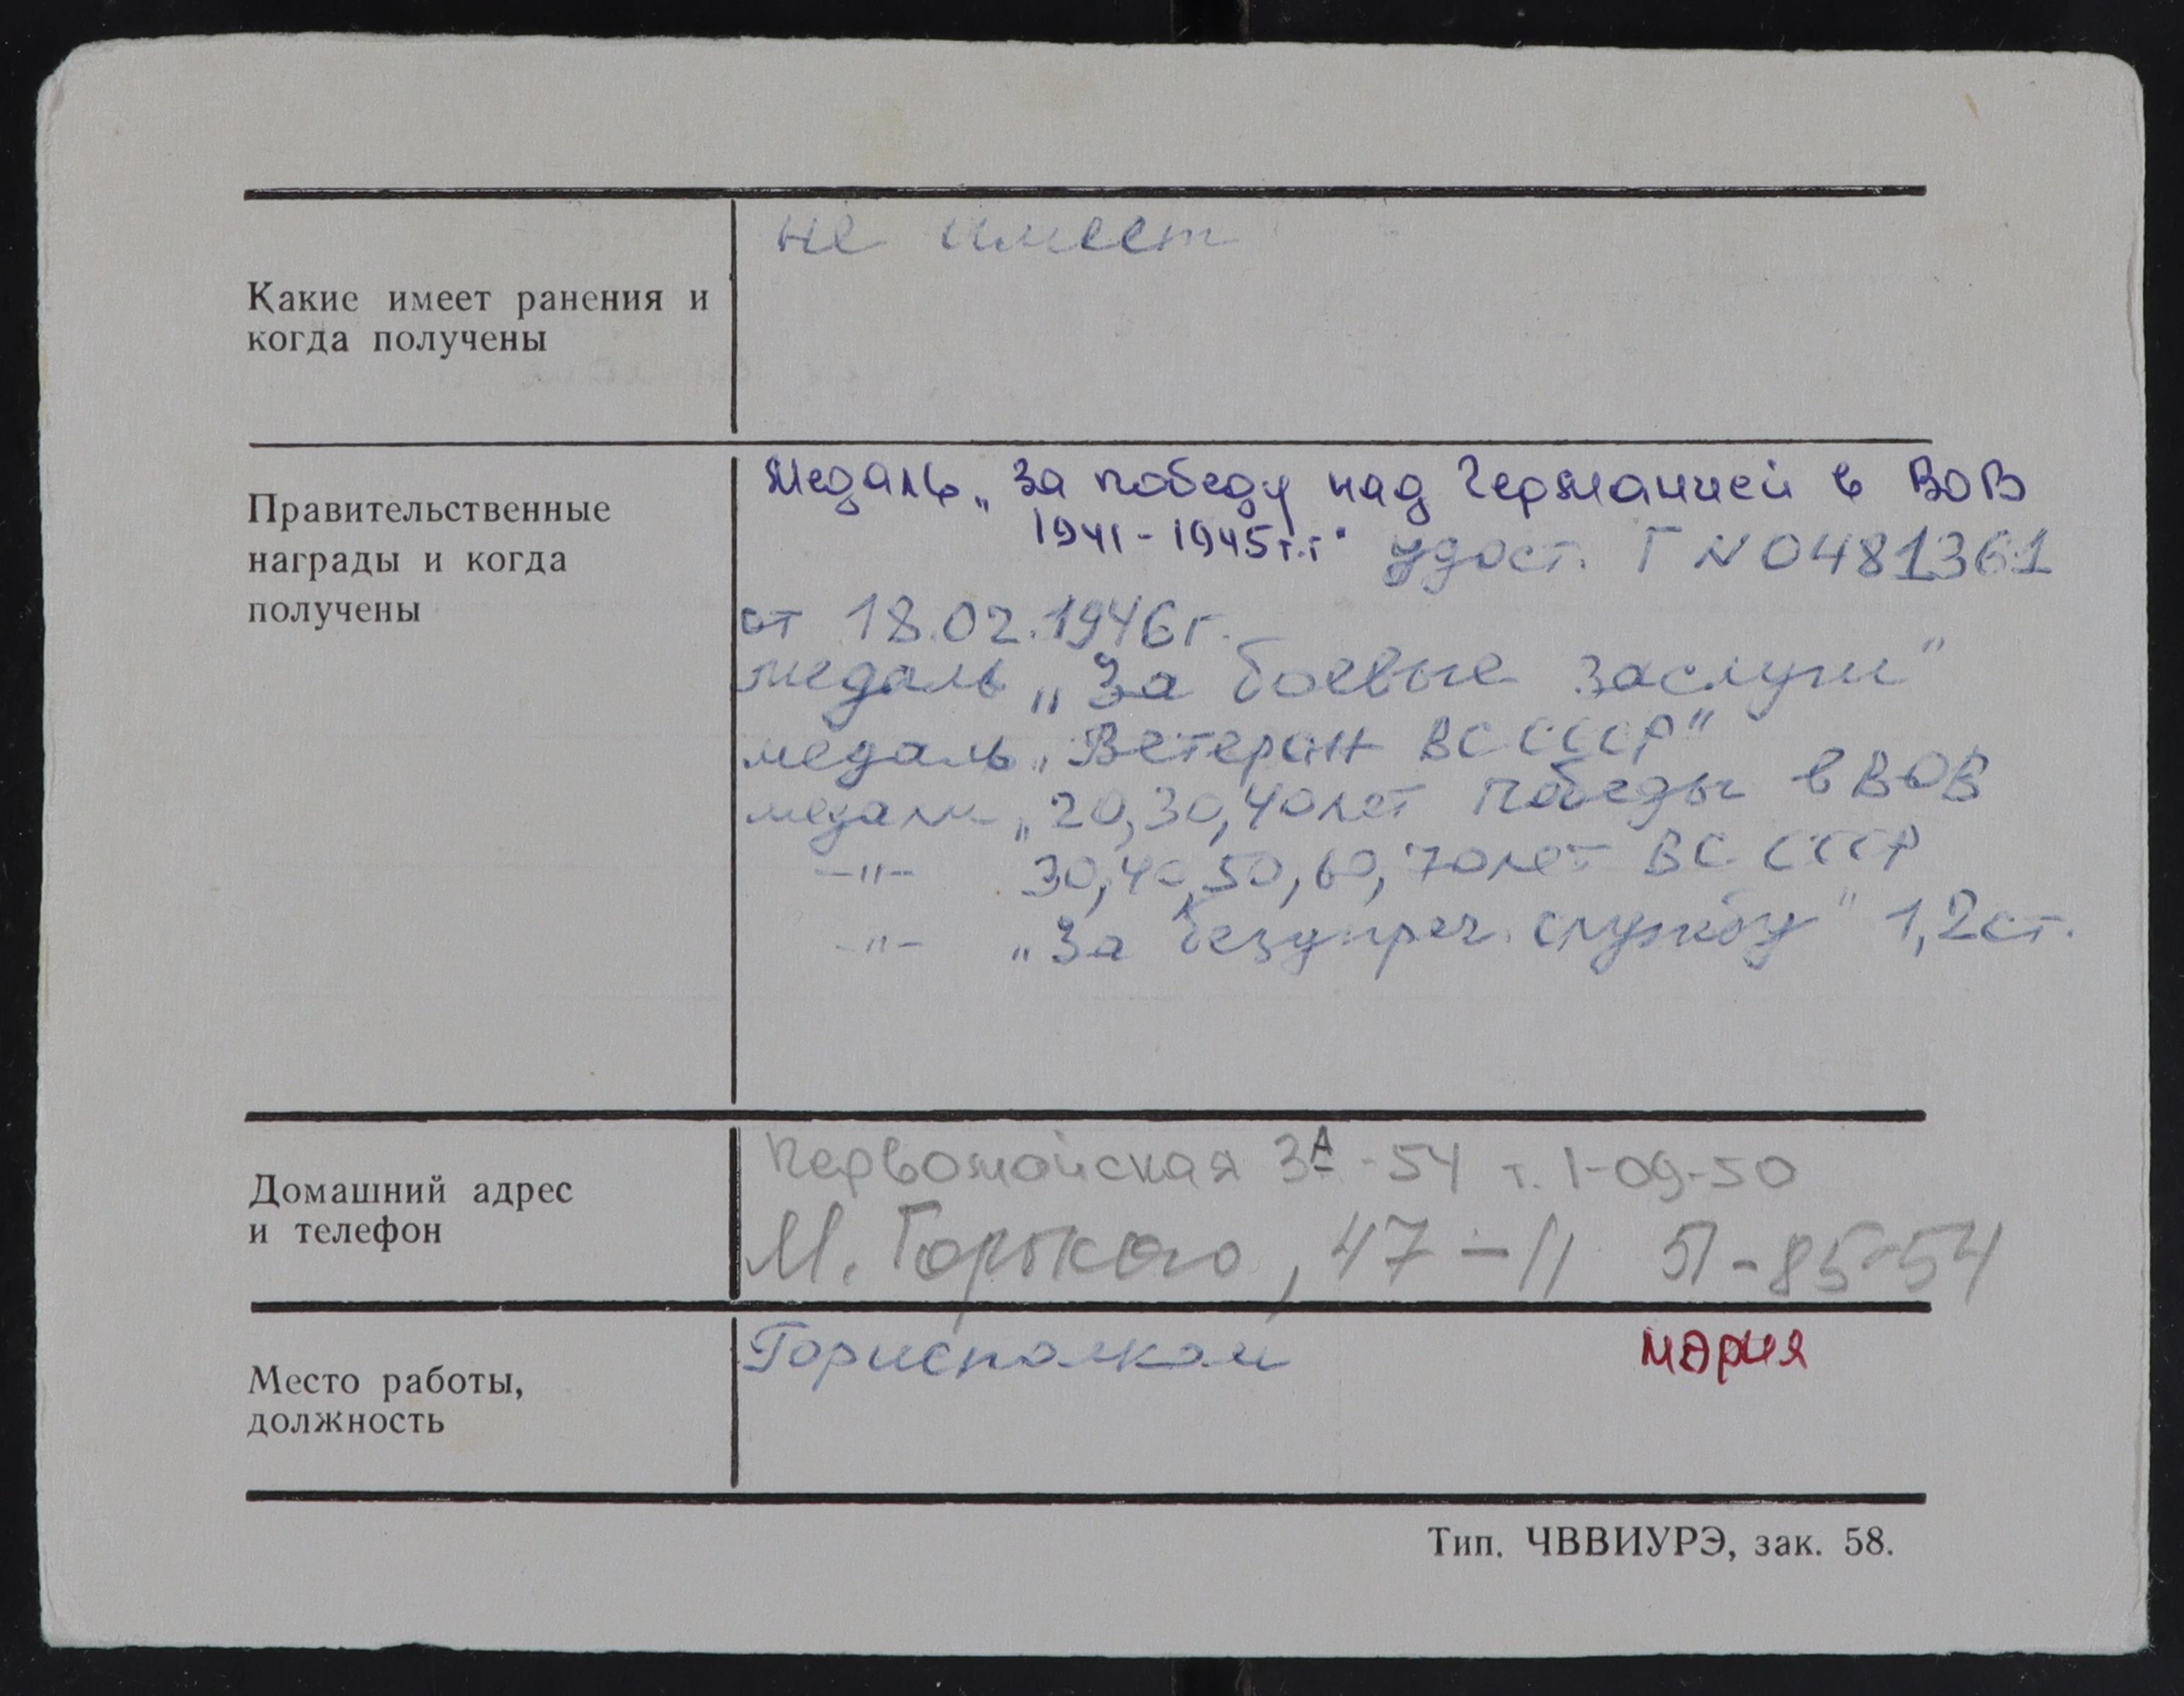 не имеет
Какие имеет ранения и
когда получены
Правительственные
награды и когда
получены
Медаль „За победу над Германией в ВОВ
1941-1945г.г" удост. Г N 0481361
от 18.02.1946г.
медаль „За боевые заслуги"
медаль „Ветеран ВС СССР"
медали „20,30,40 лет Победы в ВОВ
-"- 30,40,50,60,70 лет ВС СССР
-"- „За безупреч. службу" 1,2 ст.
Домашний адрес
и телефон
Первомайская 3А-54 т. 1-09-50
М. Горького, 47-11 51-85-54
Место работы,
должность
Горисполком мэрия
Тип. ЧВВИУРЭ, зак. 58.